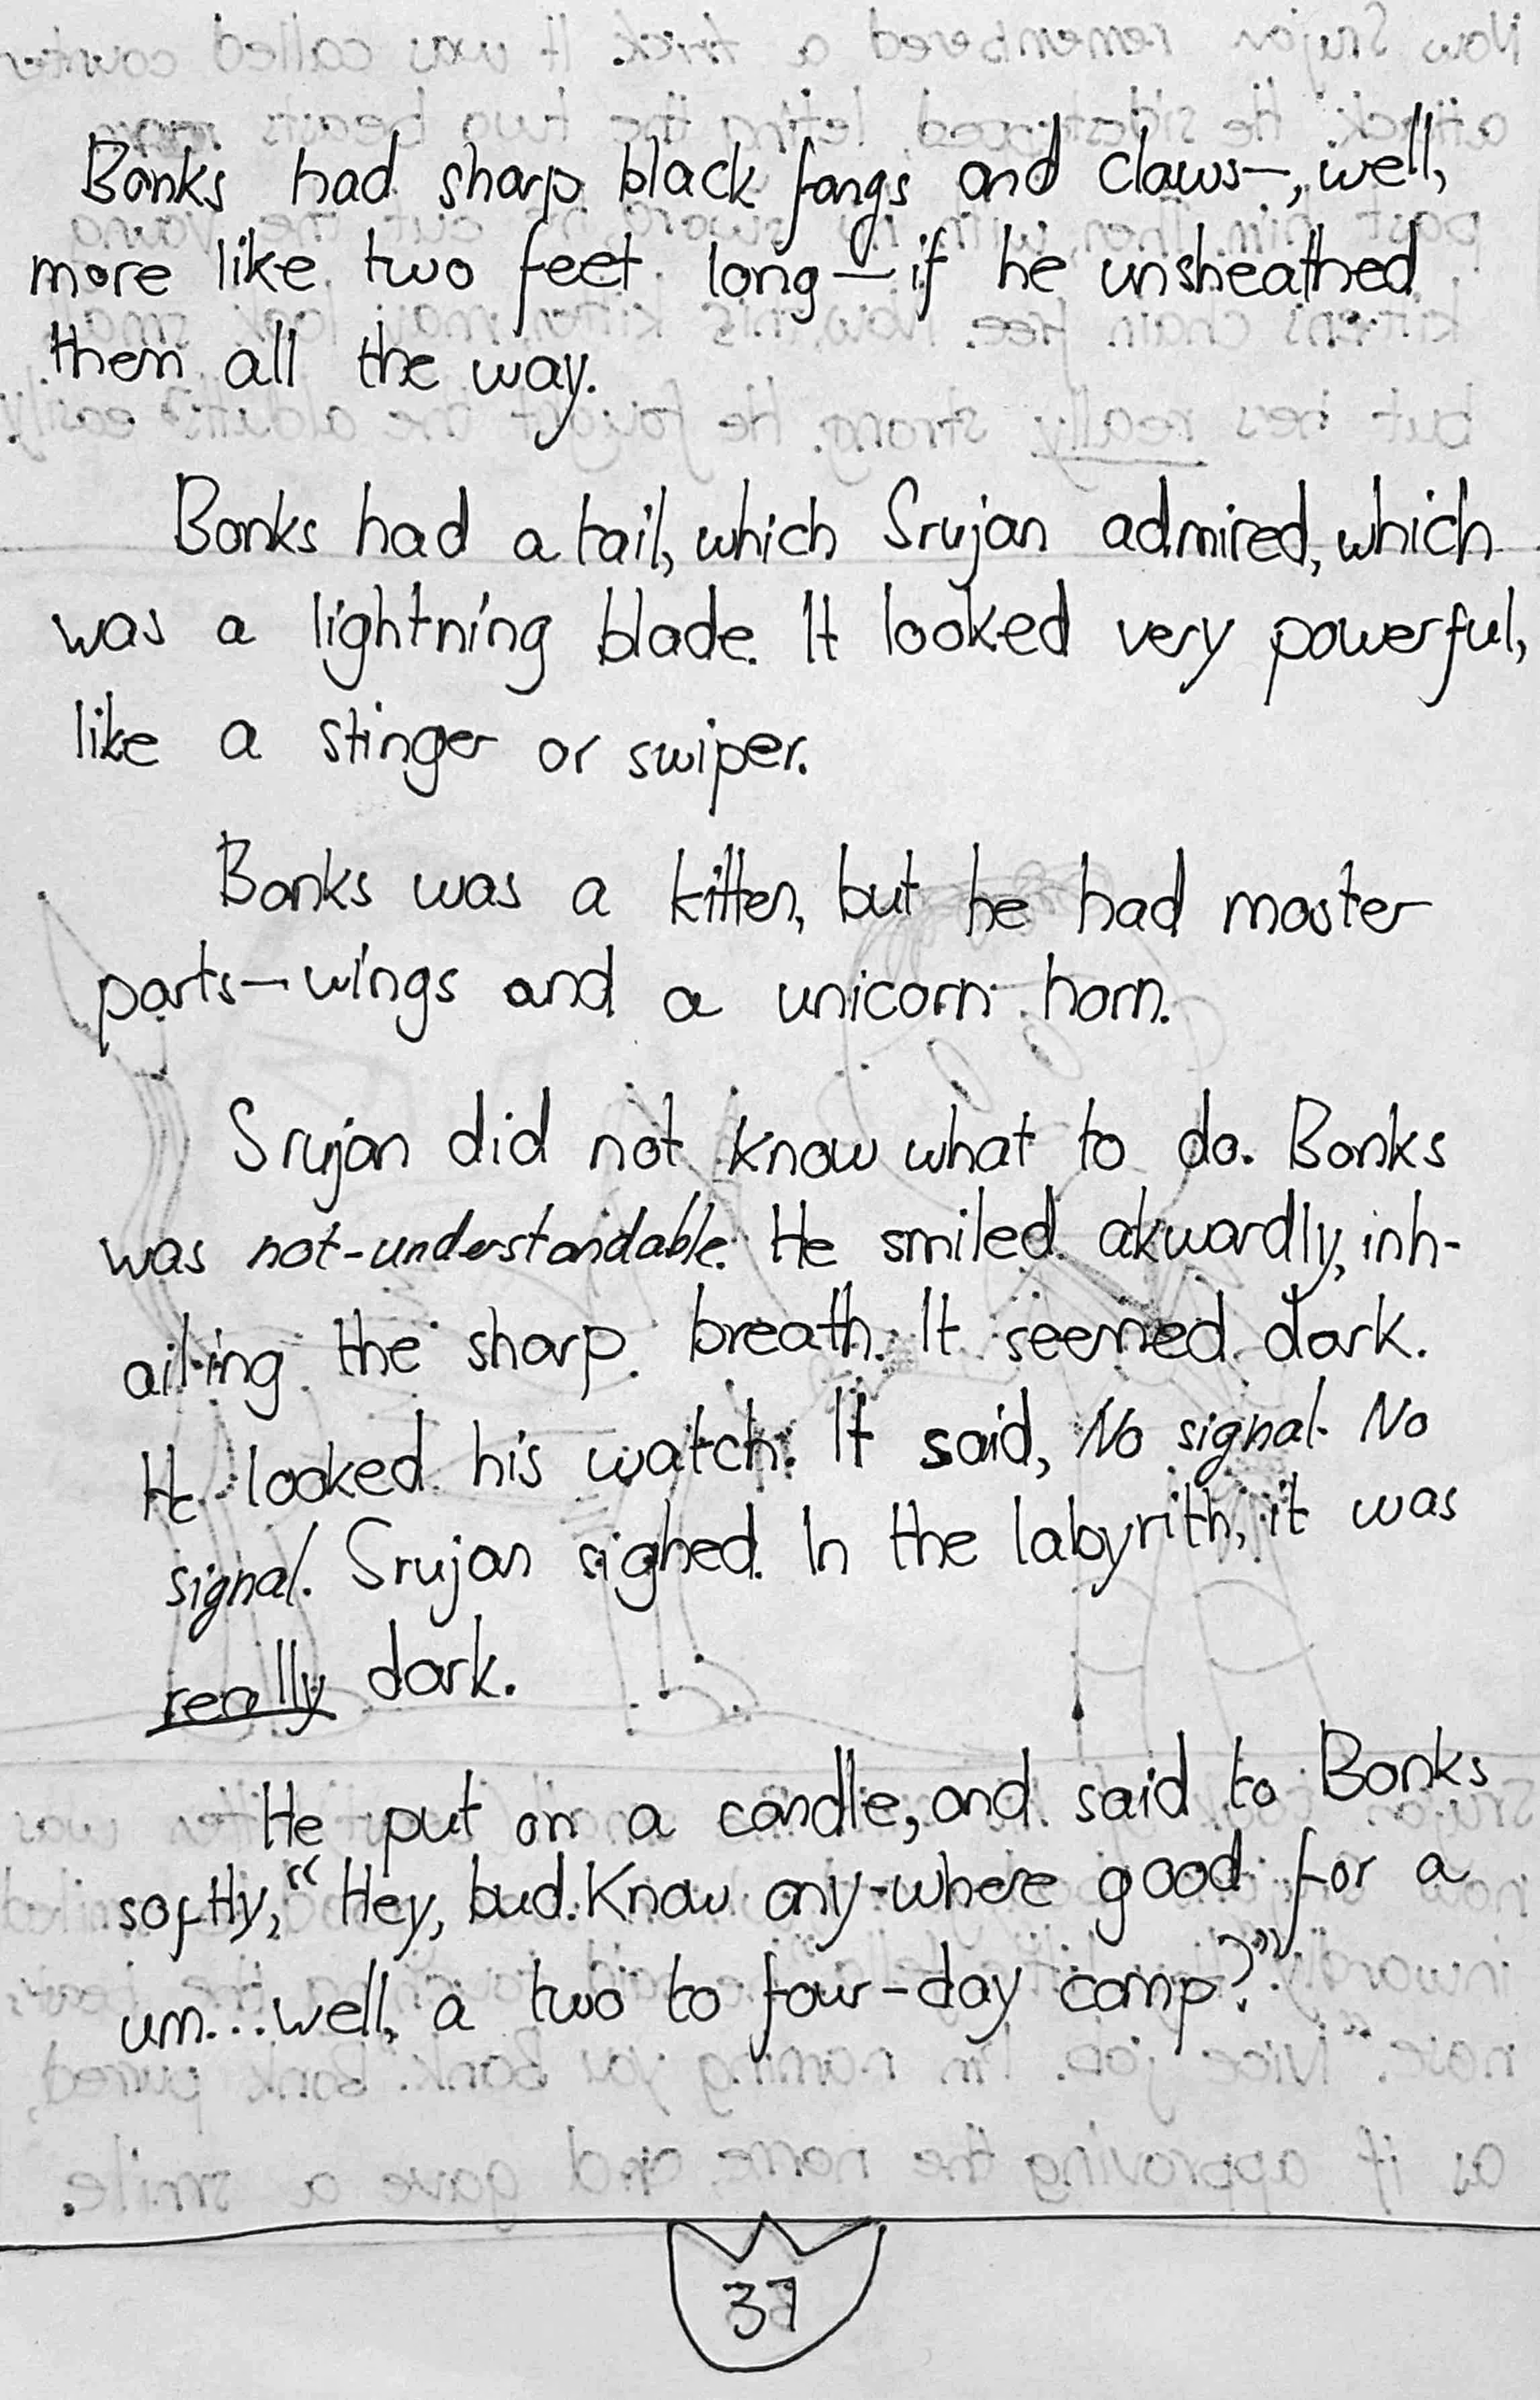 Bonks had sharp black fangs and claws—, well,
more like two feet long — if he unsheathed
them all the way.
Bonks had a tail, which Srujan admired, which
was a lightning blade. It looked very powerful,
like a stinger or swiper.
Bonks was a kitten, but he had master
parts—wings and a unicorn horn.
Srujan did not know what to do. Bonks
was not-understandable. He smiled akwardly, inh-
ailing the sharp breath. It seemed dark.
He looked his watch. It said, No signal. No
signal. Srujan sighed. In the labyrith, it was
really dark.
He put on a candle, and said to Bonks
softly, "Hey, bud. Know any-where good for a
um...well, a two to four-day camp?"
37